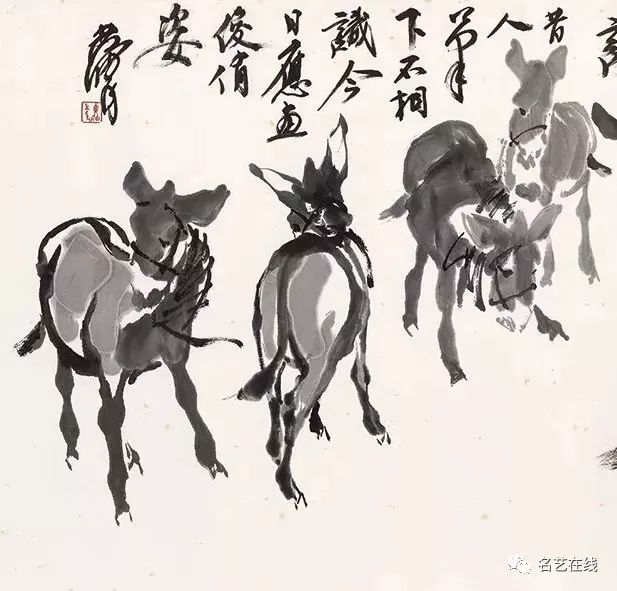 昔
人
筆
下不相
識今
日應畫
俊俏
姿
黄胄
名艺在线